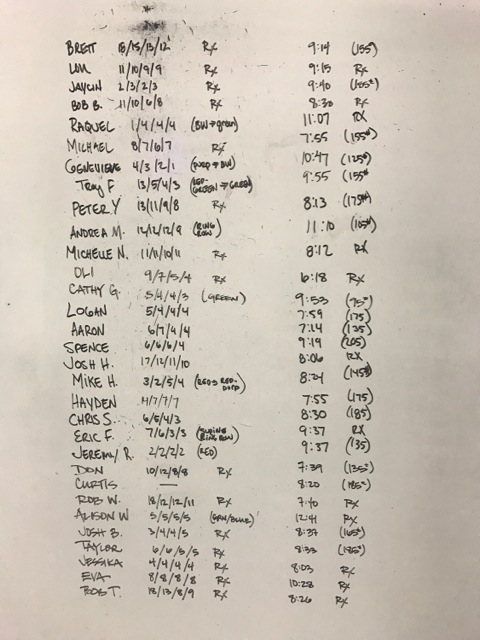 BRETT 18/15/13/12 Rx 9:14 (155)
LOU 11/10/9/9 Rx 9:15 Rx
JAYLIN 2/3/2/3 Rx 9:40 (185#)
BOB B. 11/10/6/8 Rx 8:30 Rx
RAQUEL 1/4/4/4 (BW→green) 11:07 RX
MICHAEL 8/7/6/7 Rx 7:55 (155#)
GENEVIEVE 4/3/2/1 (PURP→BW) 10:47 (125#)
TROY F 13/5/4/3 (RED-GREEN→GREEN) 9:55 (155#)
PETER Y 13/11/9/8 Rx 8:13 (175#)
ANDREA M. 14/12/12/9 (RING ROW) 11:10 (105#)
MICHELLE N. 11/11/10/11 Rx 8:12 RX
OLI 9/7/5/4 Rx 6:18 Rx
CATHY G. 5/4/4/3 (GREEN) 9:53 (75#)
LOGAN 5/4/4/4 7:59 (175)
AARON 6/7/4/4 7:14 (135)
SPENCE 6/6/6/4 9:19 (205)
JOSH H. 17/12/11/10 8:06 RX
MIKE H. 3/2/5/4 (RED→RED-PURP) 8:24 (145#)
HAYDEN /7/7/7 7:55 (175)
CHRIS S. 6/5/4/3 8:30 (185)
ERIC F. 7/6/3/3 RING ROW) 9:37 RX
JEREMY R. 2/2/2/2 (RED) 9:37 (135)
DON 10/12/8/8 Rx 7:39 (135#)
CURTIS — 8:20 (185#)
ROB W. 18/12/12/11 Rx 7:40 Rx
ALISON W 5/5/5/5 (GRN/BLUE) 12:41 Rx
JOSH B. 3/4/4/5 Rx 8:37 (165#)
TAYLER 6/6/5/5 Rx 8:33 (185#)
JESSIKA 4/4/4/4 Rx 8:03 Rx
EVA 8/8/8/8 Rx 10:28 Rx
ROB T. 18/13/8/9 Rx 8:26 Rx